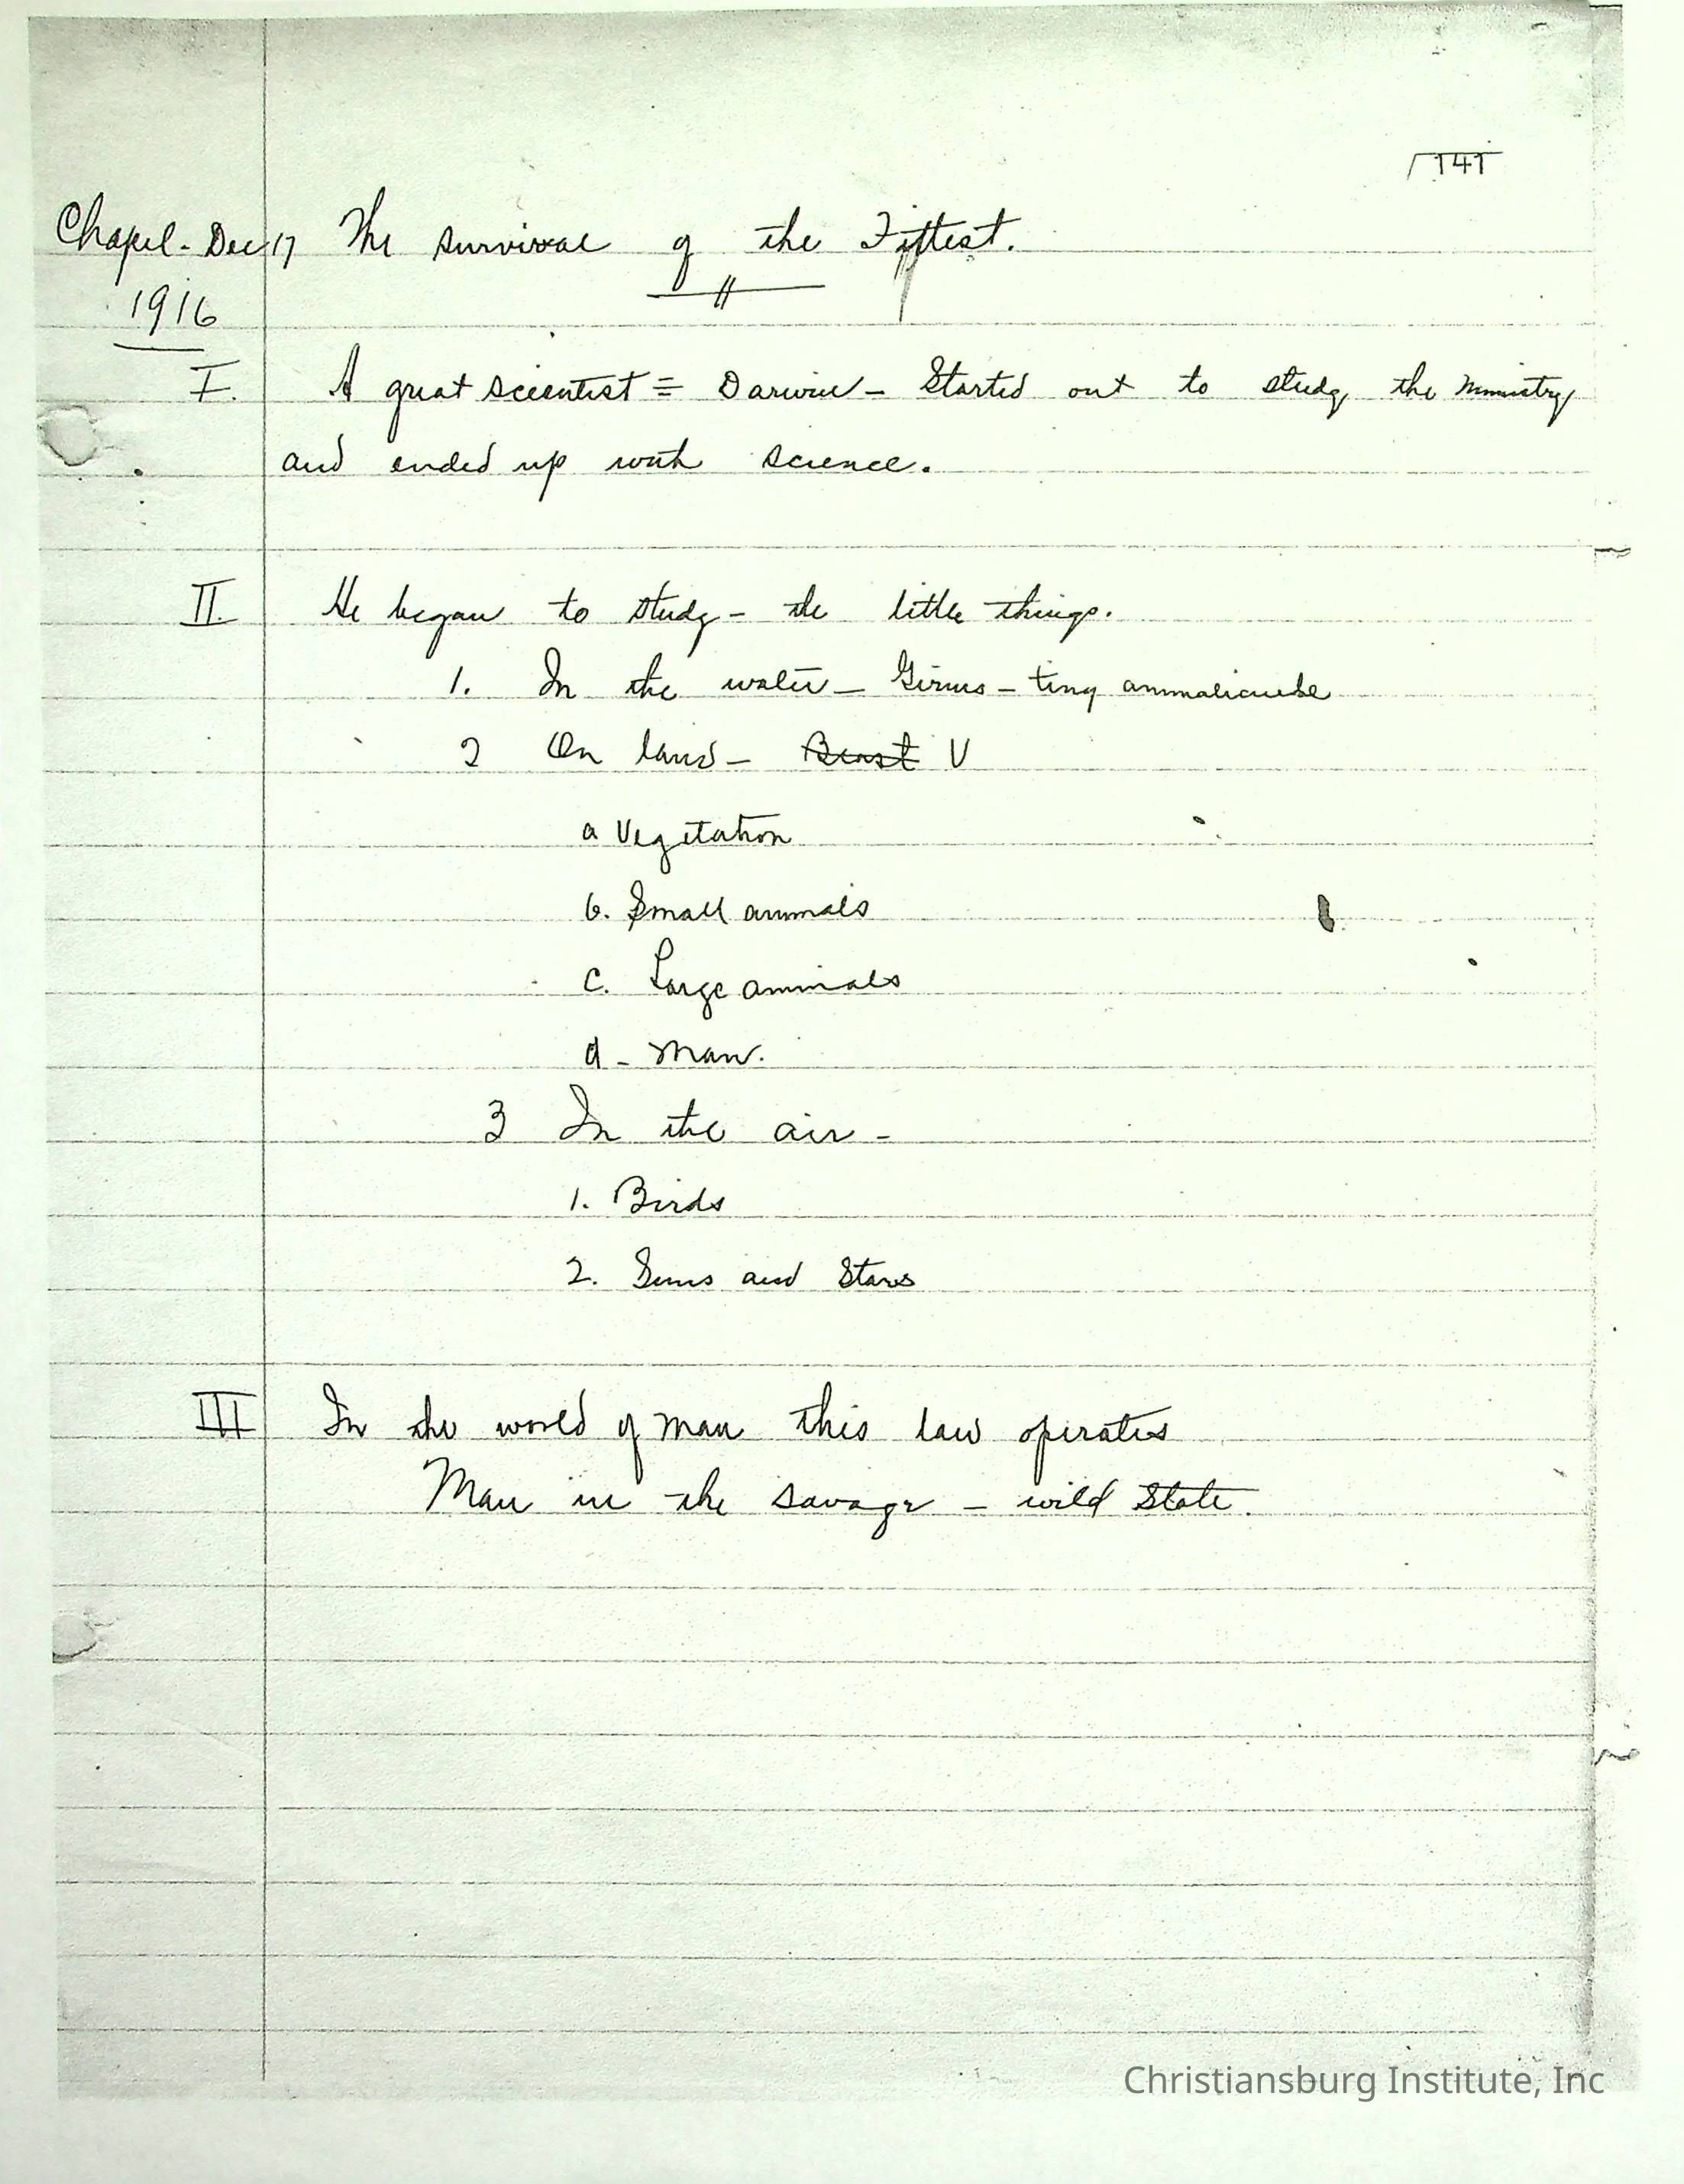 141
Chapel - Dec 17 The survival of the Fittest.
1916
I. A great scientist = Darwin - Started out to study the ministry
and ended up with science.
II. He began to study - the little things.
1. In the water - Germs - tiny
2 On land - Beast V
a Vegetation
b. Small animals
c. Large animals
d - Man.
3 In the air -
1. Birds
2. Suns and Stars
III In the world of man this law operates
Man in the savage - wild State.
Christiansburg Institute, Inc